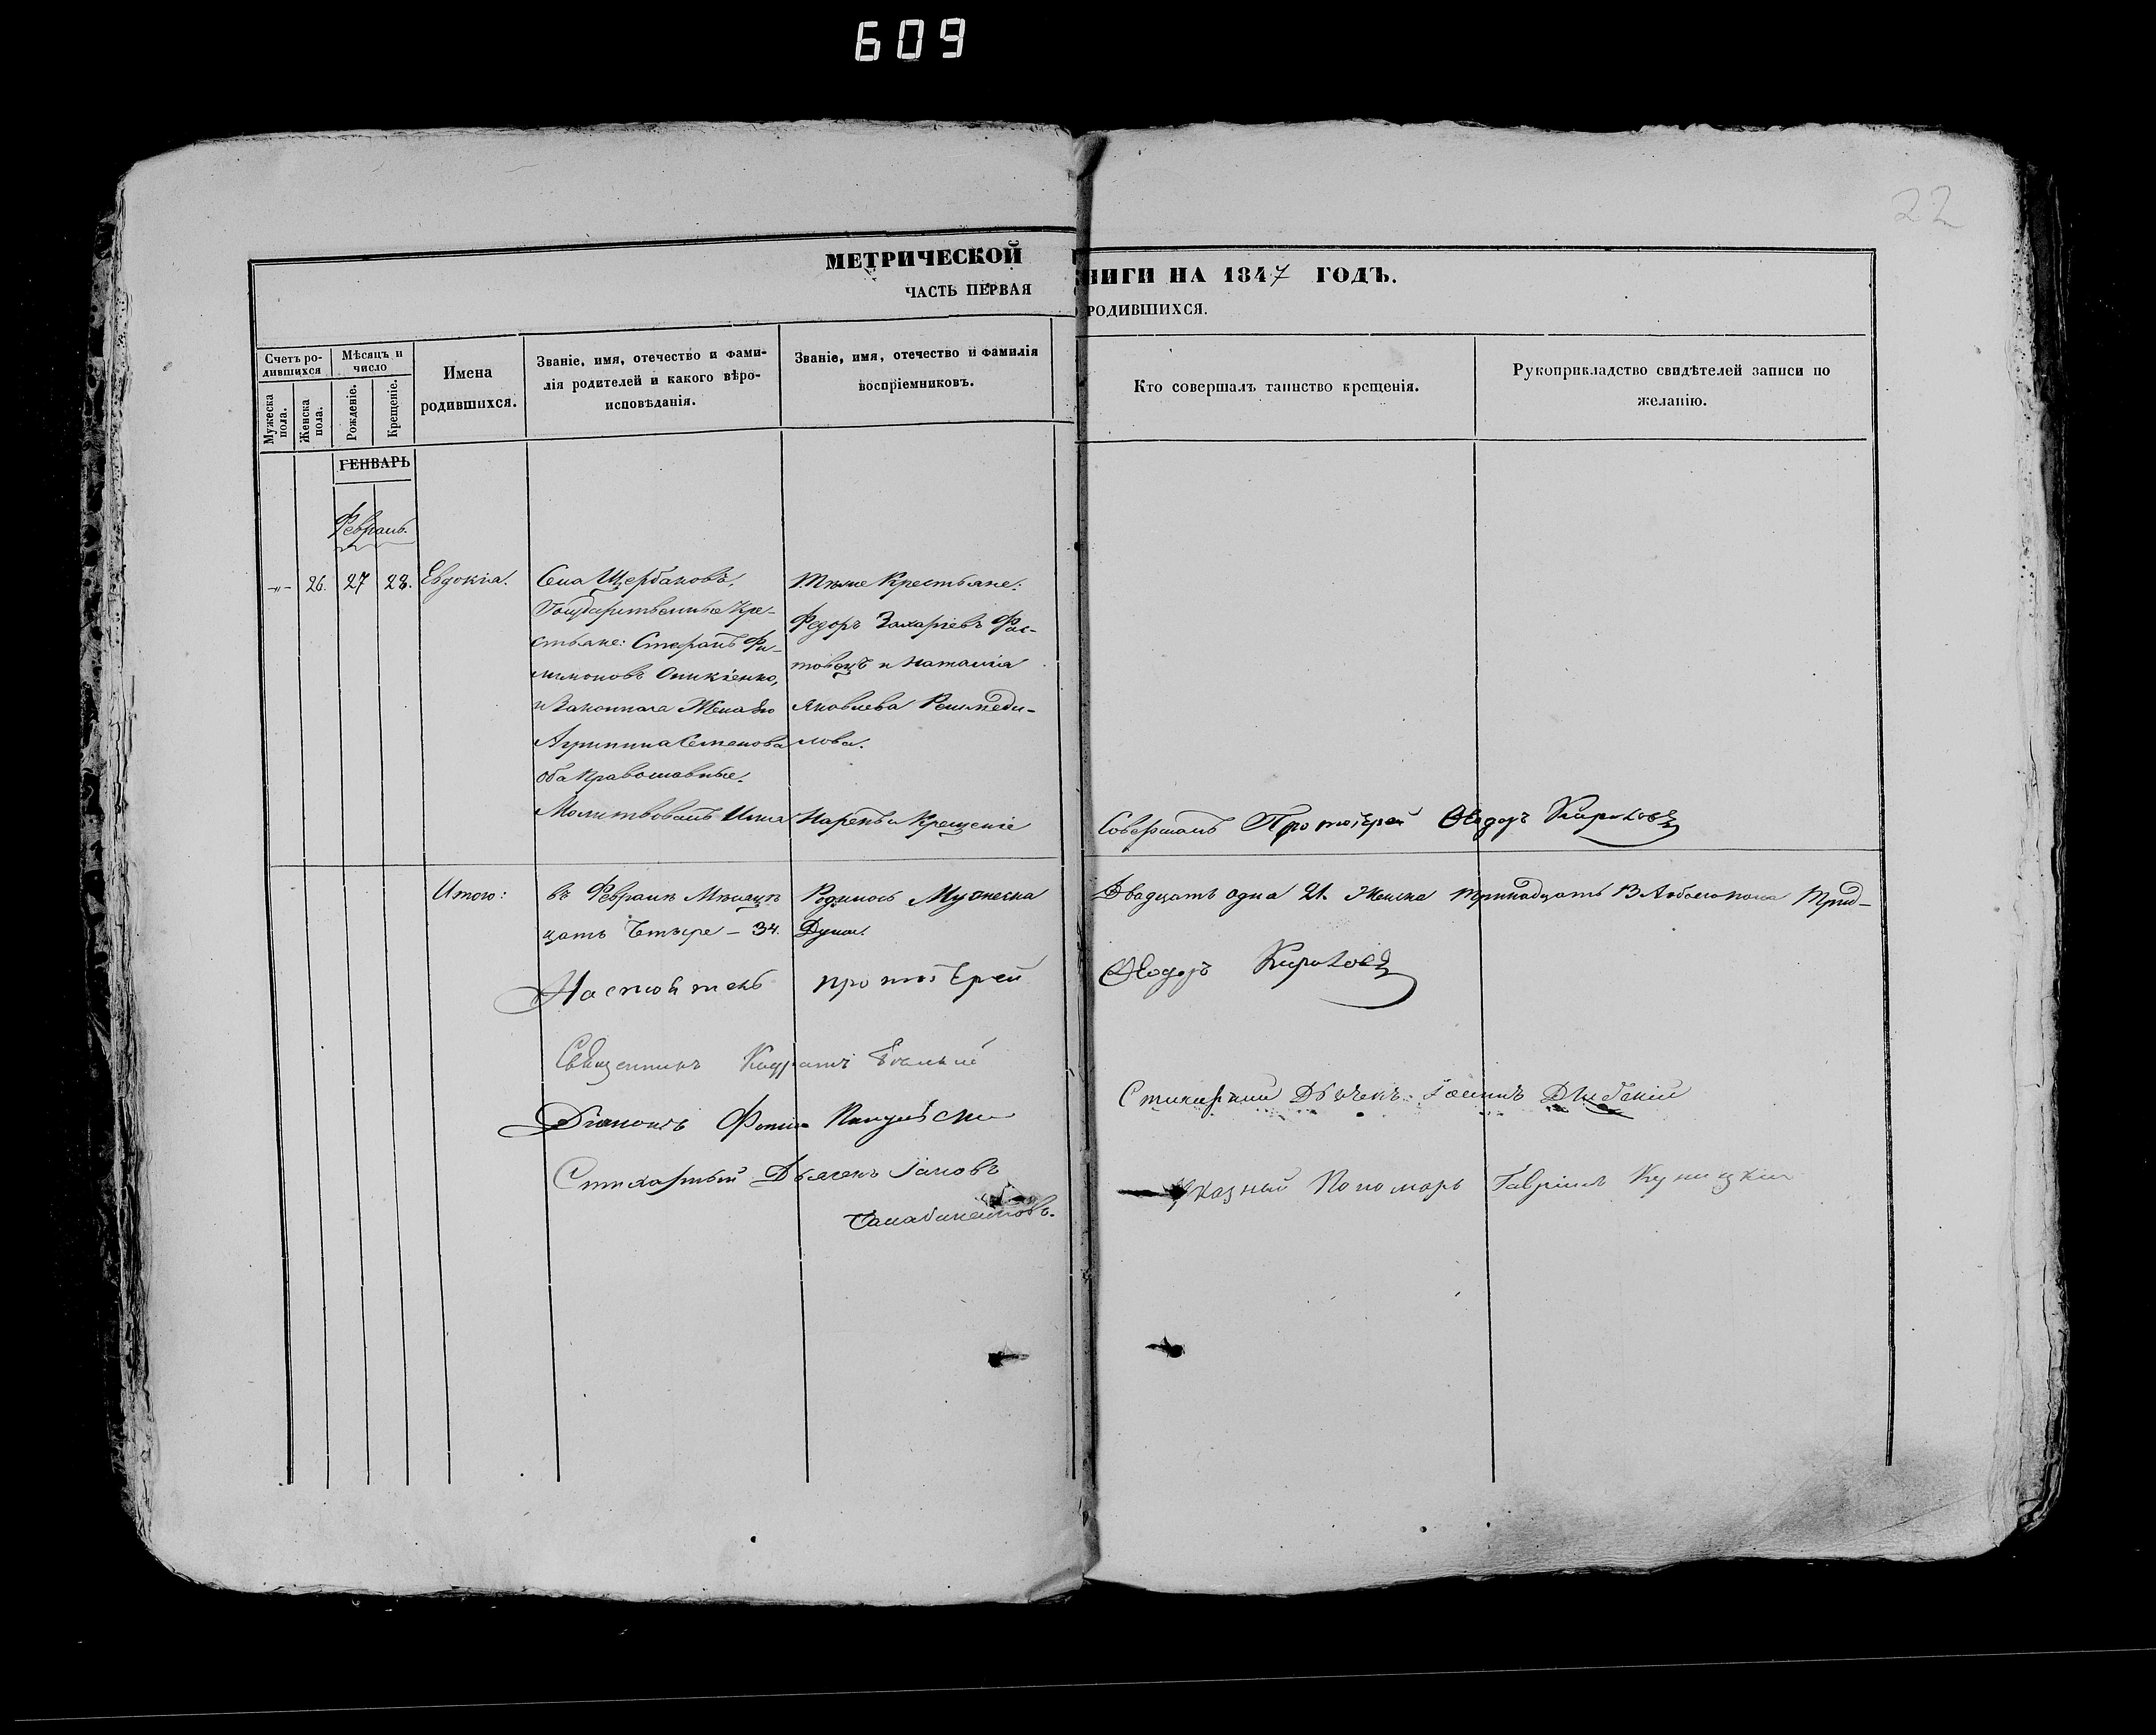 609
22
МЕТРИЧЕСКОЙ
НИГИ НА 1847 ГОДЪ.
ЧАСТЬ ПЕРВАЯ
РОДИВШИХСЯ.
Счетъ ро-
дившихся
Мѣсяцъ и
число
Мужеска
пола.
Женска
пола.
Рожденіе.
Крещеніе.
Имена
родившихся.
Званіе, имя, отечество и фами-
лія родителей и какого вѣро-
исповѣданія.
Званіе, имя, отечество и фамилія
воспріемниковъ.
Кто совершалъ таинство крещенія.
Рукоприкладство свидѣтелей записи по
желанію.
ГЕНВАРЬ
Февраль.
-"- 26. 27 28. Евдокіа.
Села Щербаковъ,
Государственные Кре-
стьяне: Стефанъ Фи-
лимоновъ Оникіенко,
и Законная Жена Его
Агрипина Семенова
оба Православные.
Молитвовалъ Имя
Тѣже Крестьяне:
Федоръ Захаріевъ Фас-
товецъ и Наталіа
Яковлева
лова.
Нарекъ и Крещеніе
Совершалъ Протоіерей Ѳеодоръ
Итого: въ Февралѣ Мѣсяцѣ Родилось Мужеска Двадцать одна 21. Женска тринадцать 13 Аобоего пола Трид-
цать Четыре – 34. Души.
Настоятель протоіерей Ѳеодоръ
Священникъ
Діаконъ Фома
Стихарный Дьячекъ Іоаннъ
Стихарный Дьячекъ Іаковъ
Указный Пономарь Гавріилъ Куницкій